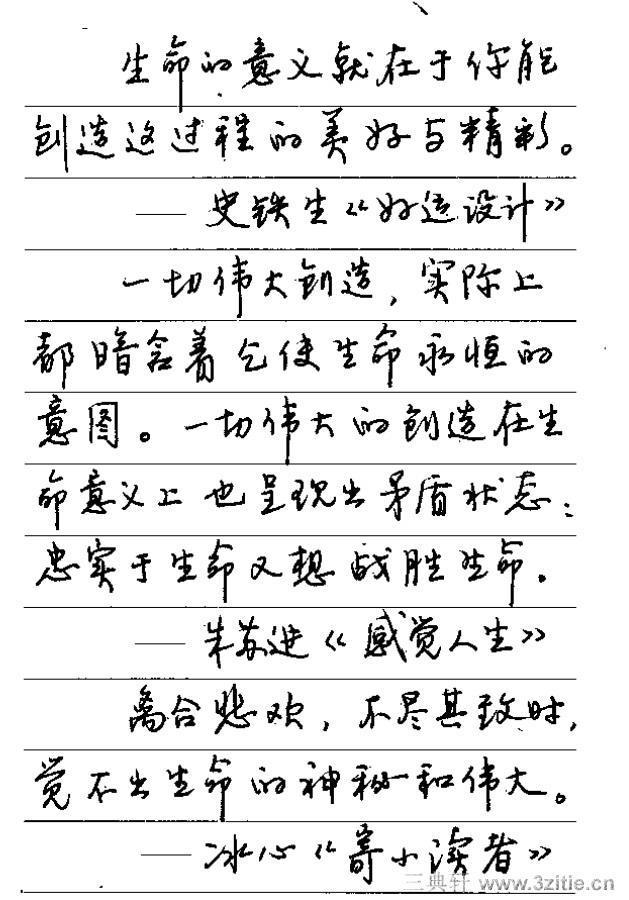 生命的意义就在于你能
创造这过程的美好与精彩。
——史铁生《好运设计》
一切伟大创造,实际上
都暗含着乞使生命永恒的
意图。一切伟大的创造在生
命意义上也呈现出矛盾状态:
忠实于生命又想战胜生命。
——朱苏进《感觉人生》
离合悲欢,不尽其致时,
觉不出生命的神秘和伟大。
——冰心《寄小读者》
三典轩 www.3zitie.cn